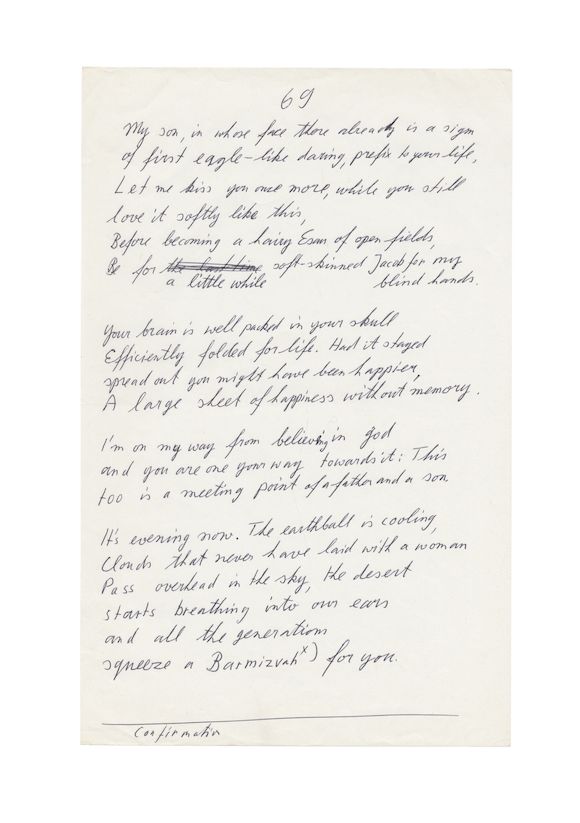 69
My son, in whose face there already is a sign
of first eagle-like daring, prefix to your life,
Let me kiss you once more, while you still
love it softly like this,
Before becoming a hairy Esau of open fields,
Be for the last time soft-skinned Jacob for my
a little while blind hands.
Your brain is well packed in your skull
Efficiently folded for life. Had it stayed
spread out you might have been happier,
A large sheet of happiness without memory.
I'm on my way from believing in god
and you are one your way towards it: This
too is a meeting point of a father and a son.
It's evening now. The earthball is cooling,
Clouds that never have laid with a woman
Pass overhead in the sky, the desert
starts breathing into our ears
and all the generations
squeeze a Barmizvah x) for you.
Confirmation